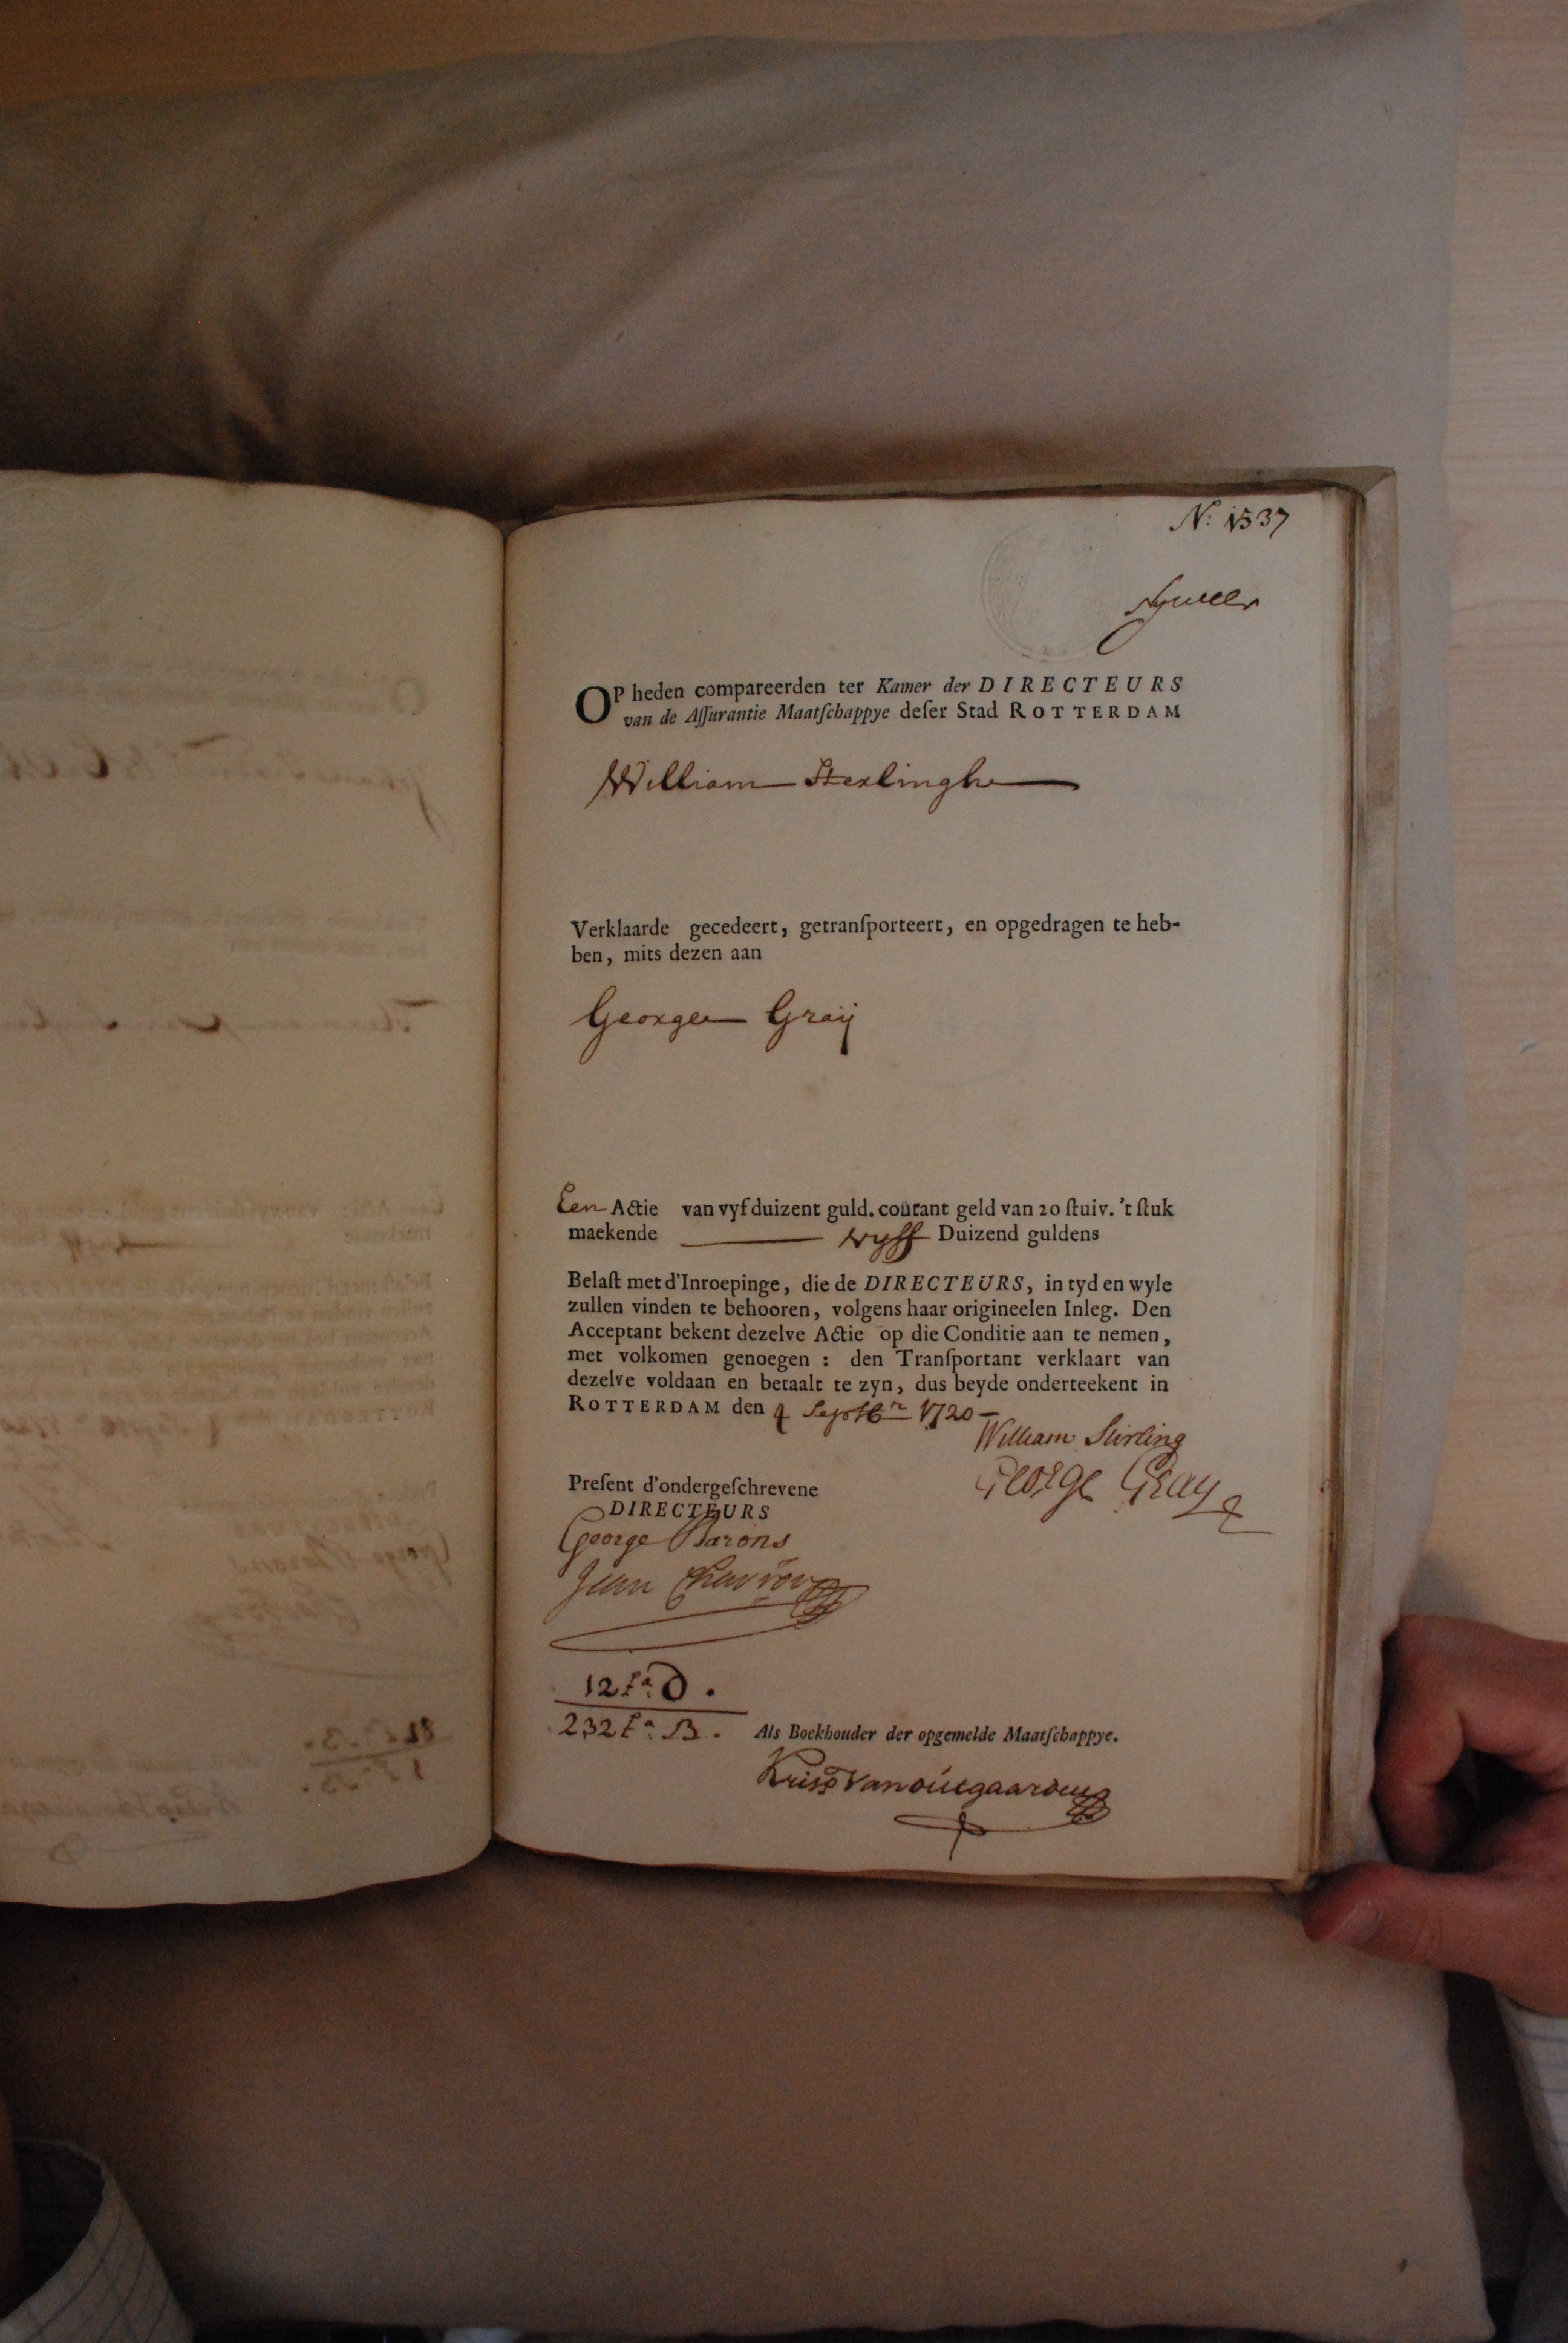 N: 1537
OP heden compareerden ter Kamer der DIRECTEURS
van de Aſſurantie Maatſchappye deſer Stad ROTTERDAM
William Sterlinghe
Verklaarde gecedeert, getranſporteert, en opgedragen te heb-
ben, mits dezen aan
George Graÿ
Een Actie van vyf duizent guld. courant geld van 20 ſtuiv. 't ſtuk
maekende vyff Duizend guldens
Belaſt met d'Inroepinge, die de DIRECTEURS, in tyd en wyle
zullen vinden te behooren, volgens haar origineelen Inleg. Den
Acceptant bekent dezelve Actie op die Conditie aan te nemen,
met volkomen genoegen : den Tranſportant verklaart van
dezelve voldaan en betaalt te zyn, dus beyde onderteekent in
ROTTERDAM den 4 Septbr 1720
William Stirling
George Gray
Preſent d'ondergeſchrevene
DIRECTEURS
George Barons
Jean
12 fo: D.
232 fo: B.
Als Boekhouder der opgemelde Maatſchappye.